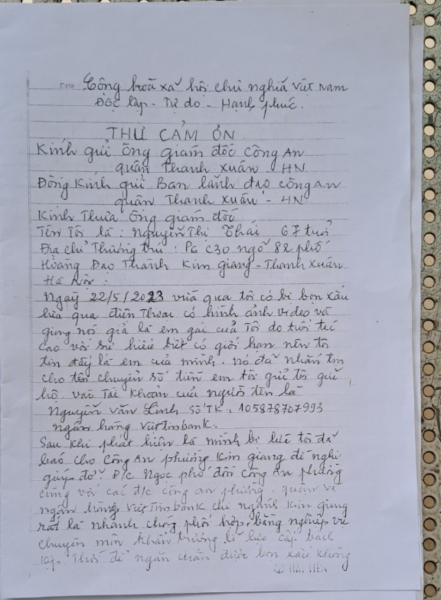 Cộng hoà xã hội chủ nghĩa Việt Nam
Độc lập - Tự do - Hạnh phúc.
THƯ CẢM ƠN
Kính gửi Ông giám đốc Công An
quận Thanh Xuân - HN
Đồng Kính gửi Ban lãnh đạo công an
quận Thanh Xuân - HN
Kính Thưa Ông giám đốc
Tên Tôi là: Nguyễn Thị Thái 67 tuổi
Địa chỉ Thường trú: P6 C30 ngõ 82 phố
Hoàng Đạo Thành Kim Giang - Thanh Xuân
Hà Nội.
Ngày 22/5/2023 vừa qua tôi có bị bọn xấu
lừa qua điện Thoại có hình ảnh video và
giọng nói giả là em gái của Tôi do tuổi
cao với sự hiểu biết có giới hạn nên tôi
tin đấy là em của mình. nó đã nhắn tin
cho tôi chuyển số tiền em tôi gửi tôi giữ
hộ vào Tài khoản của người tên là
Nguyễn Văn Linh số TK: 105878707993
ngân hàng vietinbank.
Sau khi phát hiện là mình bị lừa tôi đã
báo cho Công An phường Kim giang đề nghị
giúp đỡ. Đ/c Ngọc phó đồn Công An phường
cùng với các đ/c công an phường, quận và
ngân hàng Vietinbank chi nhánh Kim Giang
rất là nhanh chóng phối hợp, bằng nghiệp vụ
chuyên môn khẩn trương
kịp Thời để ngăn chặn được bọn xấu không